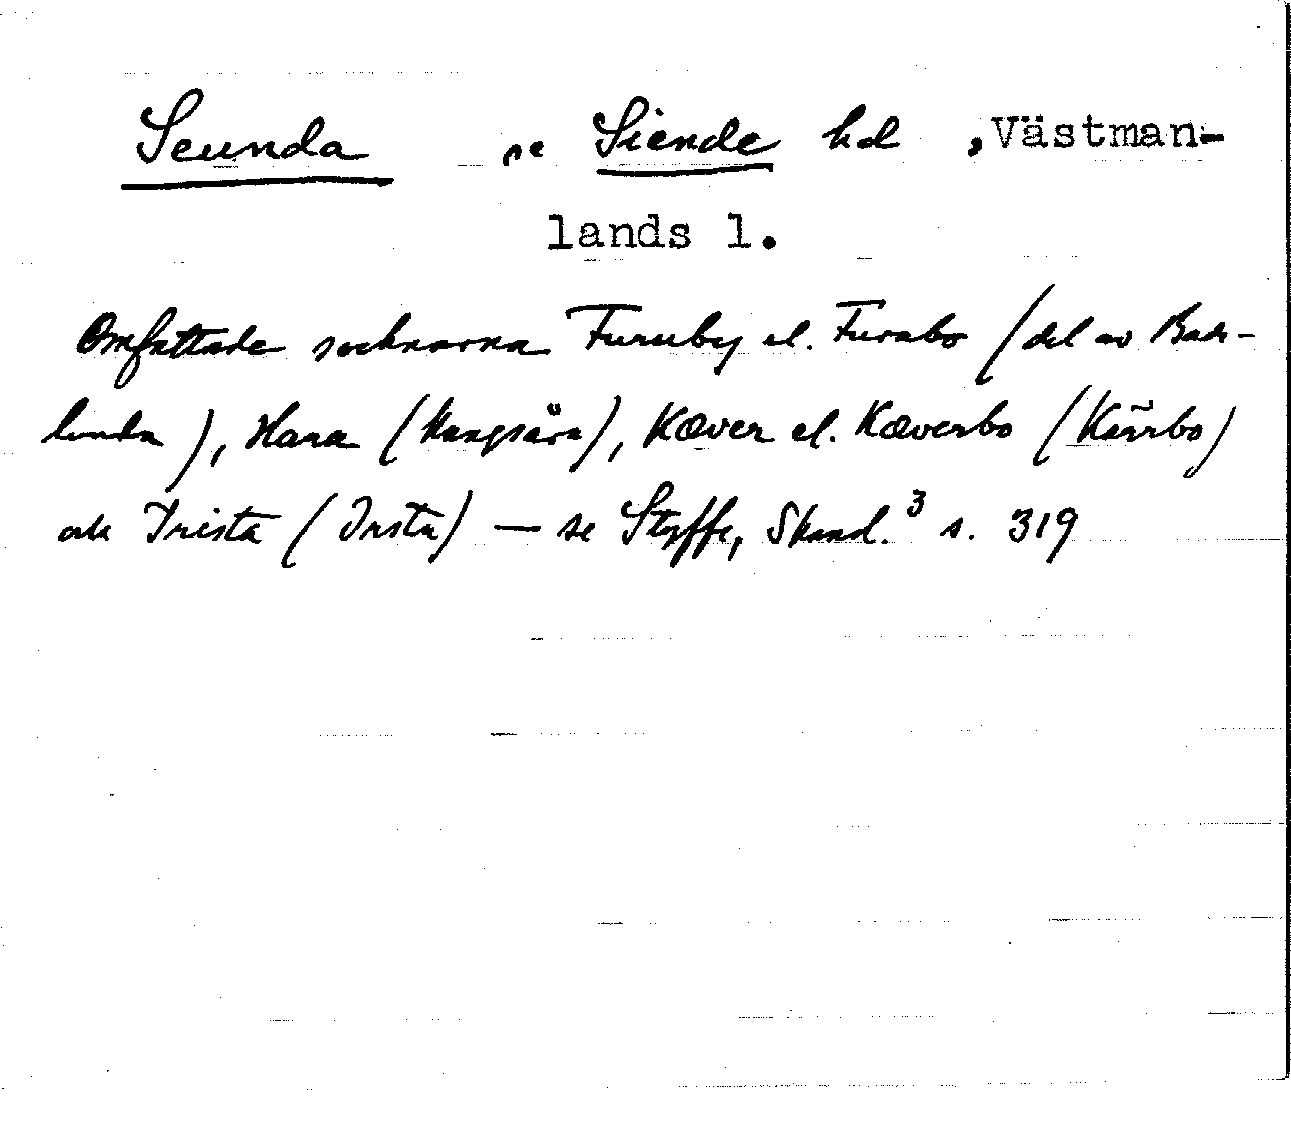 Seunda se Siende hd , Västman-
lands l.
Omfattade socknarna Furuby el. Furabo (del av Bad-
lunda), Hara (Kungsåra), Kæver el. Kæverbo (Kärrbo)
och Irista (Irsta) — se Styffe, Skand.³ s. 319